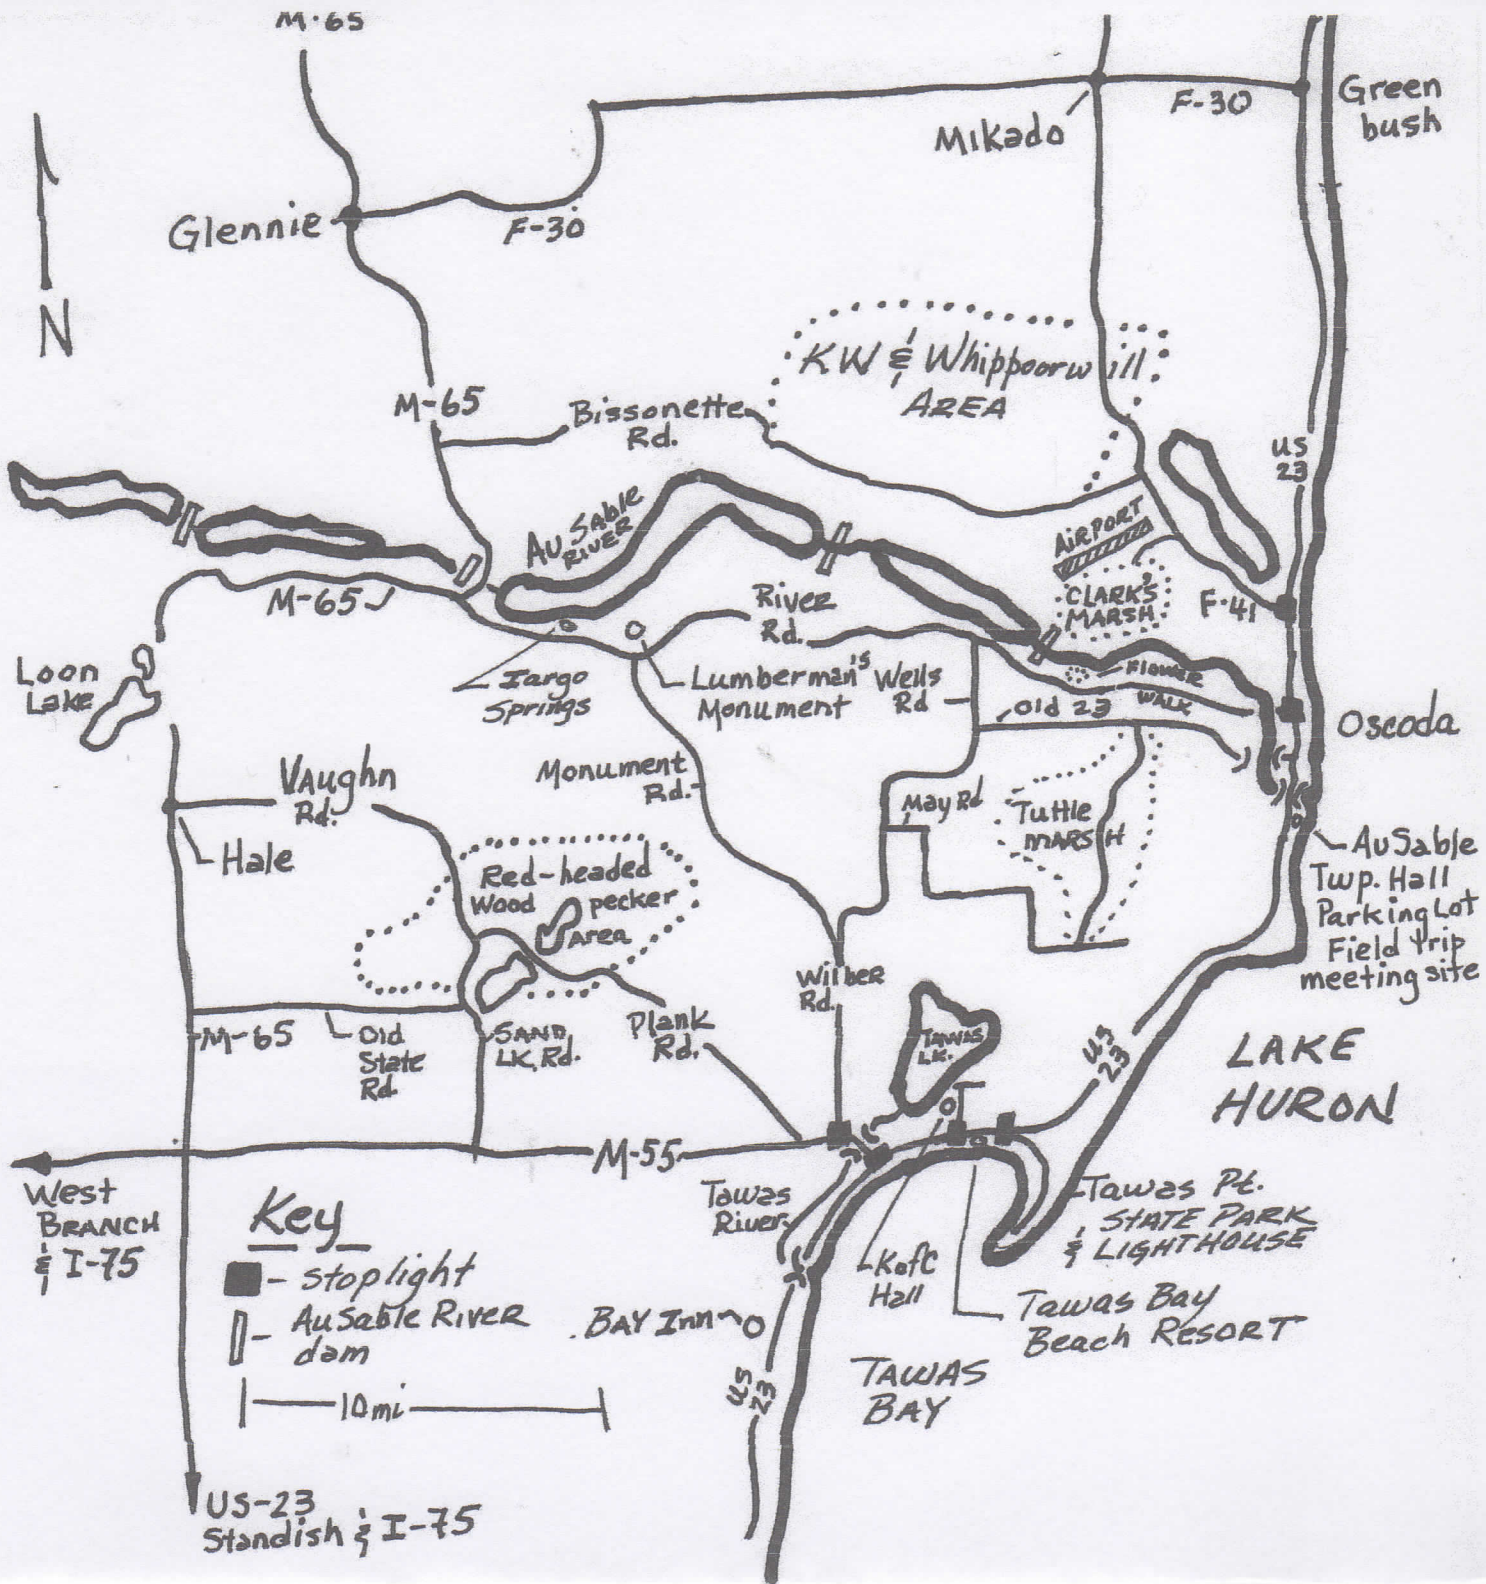 M-65
Green
bush
F-30
Mikado
Glennie
F-30
N
KW & Whippoorwill
AREA
M-65
Bissonette
Rd.
US
23
AuSable
RIVER
AIRPORT
M-65
River
Rd.
CLARK'S
MARSH
F-41
Loon
Lake
Iargo
Springs
Lumberman's
Monument
Wells
Rd
Flower
Old 23
WALK
Oscoda
Vaughn
Rd.
Monument
Rd.
May Rd
Tuttle
MARSH
Hale
AuSable
Twp. Hall
Parking Lot
Field trip
meeting site
Red-headed
Wood pecker
Area
Wilber
Rd.
M-65
Old
State
Rd.
SAND
LK. Rd.
Plank
Rd.
TAWAS
LK.
US
23
LAKE
HURON
M-55
West
BRANCH
& I-75
Tawas
River
Tawas Pt.
STATE PARK
& LIGHTHOUSE
Key
- stoplight
- AuSable River
dam
10mi
KofC
Hall
Tawas Bay
Beach RESORT
BAY Inn
US
23
TAWAS
BAY
US-23
Standish & I-75